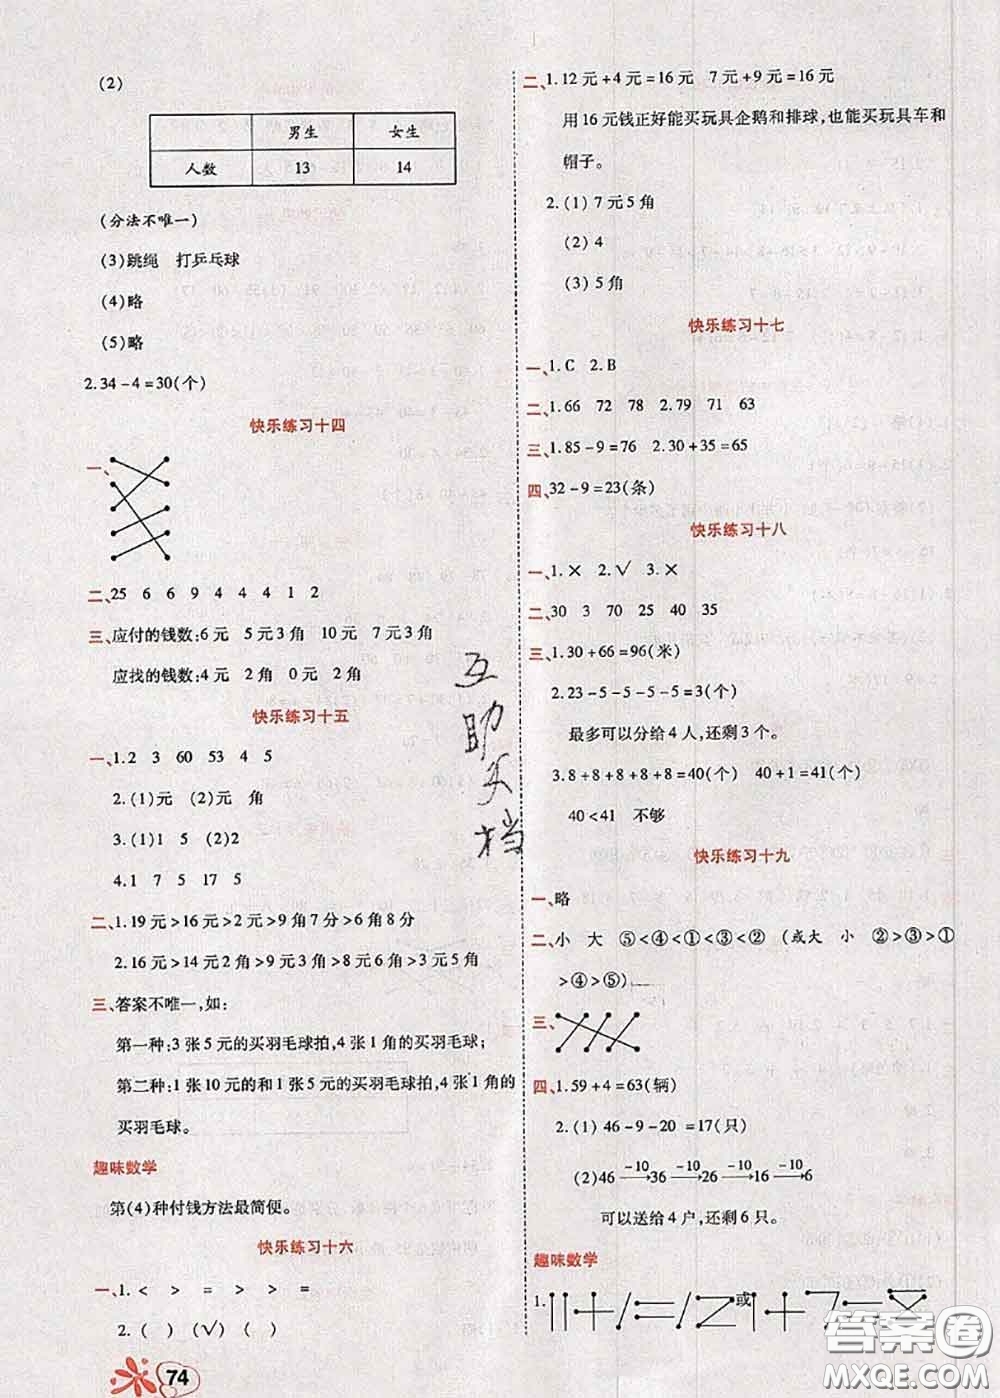 (2)
男生 女生
人数 13 14
(分法不唯一)
(3)跳绳 打乒乓球
(4)略
(5)略
2.34-4=30(个)
快乐练习十四
一、
二、25 6 6 9 4 4 4 1 2
三、应付的钱数:6元 5元3角 10元 7元3角
应找的钱数:4元 2角 0元 2角
快乐练习十五
一、1.2 3 60 53 4 5
2.(1)元 (2)元 角
3.(1)1 5 (2)2
4.1 7 5 17 5
二、1.19元>16元>2元>9角7分>6角8分
2.16元>14元2角>9元3角>8元6角>3元5角
三、答案不唯一,如:
第一种:3张5元的买羽毛球拍,4张1角的买羽毛球;
第二种:1张10元的和1张5元的买羽毛球拍,4张1角的
买羽毛球。
趣味数学
第(4)种付钱方法最简便。
快乐练习十六
一、1. < > = > > =
2. ( ) (√) ( )
74
二、1.12元+4元=16元 7元+9元=16元
用16元钱正好能买玩具企鹅和排球,也能买玩具车和
帽子。
2.(1)7元5角
(2)4
(3)5角
快乐练习十七
一、1.C 2.B
二、1.66 72 78 2.79 71 63
三、1.85-9=76 2.30+35=65
四、32-9=23(条)
快乐练习十八
一、1.× 2.√ 3.×
二、30 3 70 25 40 35
三、1.30+66=96(米)
2.23-5-5-5-5=3(个)
最多可以分给4人,还剩3个。
3.8+8+8+8+8=40(个) 40+1=41(个)
40<41 不够
快乐练习十九
一、略
二、小 大 ⑤<④<①<③<② (或大 小 ②>③>①
>④>⑤)
三、
四、1.59+4=63(辆)
2.(1)46-9-20=17(只)
(2)46 -10 → 36 -10 → 26 -10 → 16 -10 → 6
可以送给4户,还剩6只。
趣味数学
1. 11+1=12 或 1+7=8
互
助
文
档
答案圈
MXQE.COM